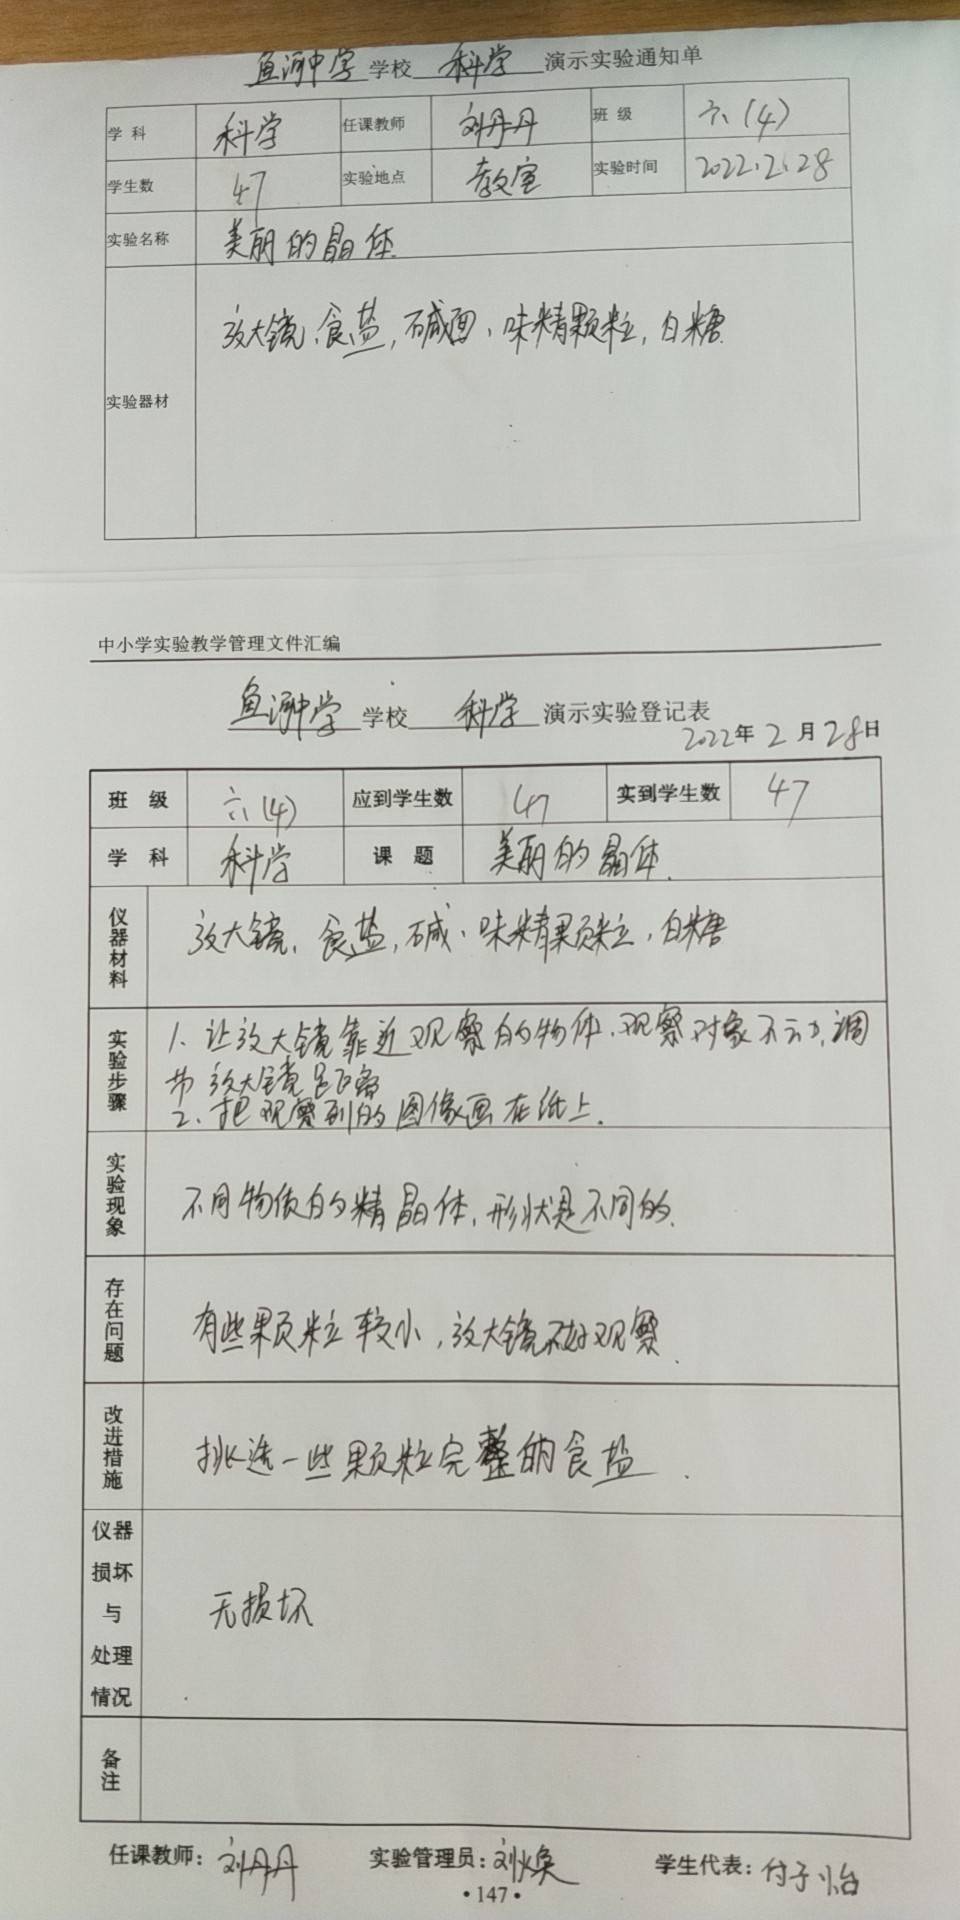 鱼河中学 学校 科学 演示实验通知单
学 科 科学 任课教师 刘丹丹 班 级 六(4)
学生数 47 实验地点 教室 实验时间 2022.2.28
实验名称 美丽的晶体
实验器材 放大镜、食盐,碱面、味精颗粒,白糖
中小学实验教学管理文件汇编
鱼河中学 学校 科学 演示实验登记表
2022年2月28日
班 级 六(4) 应到学生数 47 实到学生数 47
学 科 科学 课 题 美丽的晶体.
仪器材料 放大镜、食盐,碱、味精颗粒,白糖
实验步骤 1、让放大镜靠近观察的物体、观察对象不动,调
节放大镜距离
2、把观察到的图像画在纸上.
实验现象 不同物质的精晶体,形状是不同的.
存在问题 有些颗粒较小,放大镜不好观察.
改进措施 挑选一些颗粒完整的食盐.
仪器损坏与处理情况 无损坏
备注
任课教师:刘丹丹 实验管理员:刘焕 学生代表:付子怡
·147·